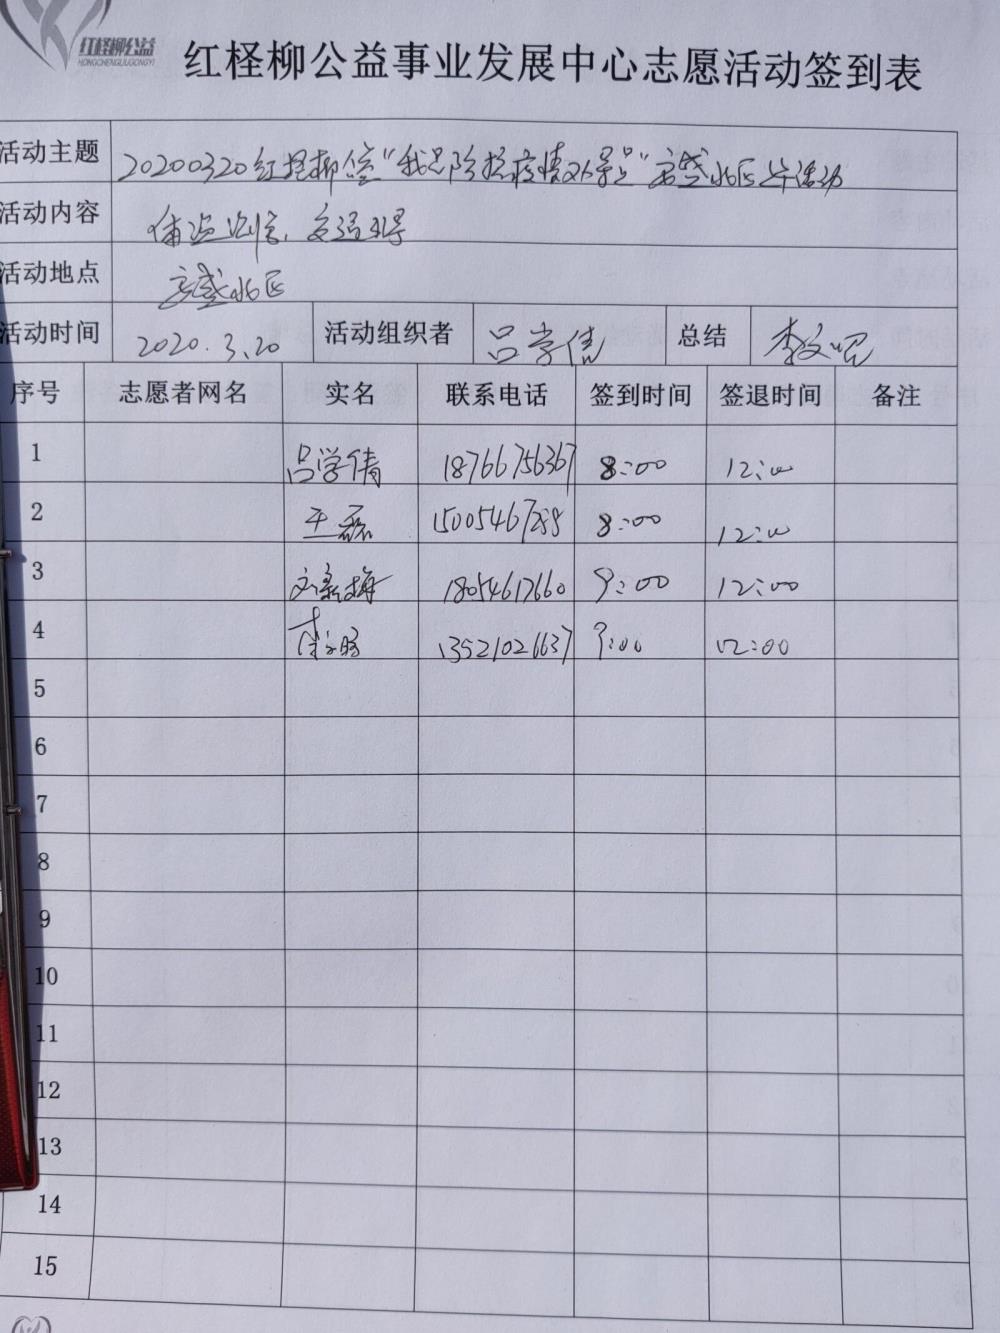 红柽柳公益
HONGCHENGLIUGONGYI
红柽柳公益事业发展中心志愿活动签到表
活动主题 20200320红柽柳公益"我是防控疫情文小景"安盛北区 活动
活动内容 体温 , 交通引导
活动地点 安盛北区
活动时间 2020.3.20 活动组织者 吕学倩 总结 李文
序号 志愿者网名 实名 联系电话 签到时间 签退时间 备注
1 吕学倩 18766756367 8:00 12:00
2 王磊 8:00 12:00
3 梅 18054617660 9:00 12:00
4 李 13521026637 9:00 12:00
5
6
7
8
9
10
11
12
13
14
15